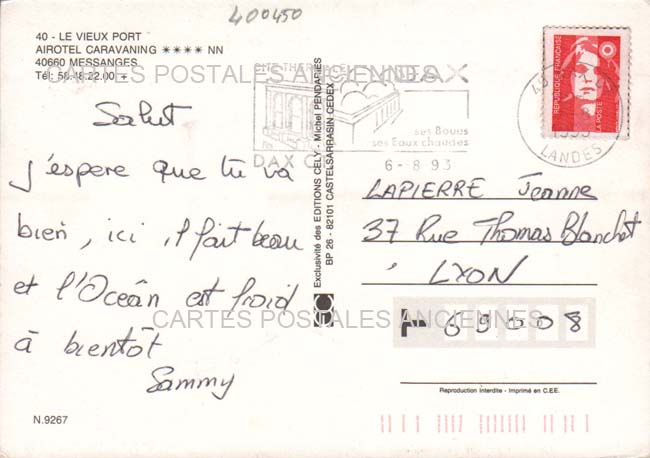 400450
40 - LE VIEUX PORT
AIROTEL CARAVANING **** NN
40660 MESSANGES
Tél: 58.48.22.00 +
CARTES POSTALES ANCIENNES
DAX
ses Boues
ses Eaux chaudes
DAX
6-8 93
LANDES
REPUBLIQUE FRANÇAISE
LA POSTE
Salut
j'espere que tu va
bien, ici, il fait beau
et l'Oceân est froid
à bientôt
Sammy
Exclusivité des EDITIONS CELY - Michel PENDARIES
BP 26 - 82101 CASTELSARRASIN CEDEX
LAPIERRE Jeanne
37 Rue Thomas Blanchet
LYON
69008
CARTES POSTALES ANCIENNES
Reproduction interdite - Imprimé en C.E.E.
N.9267